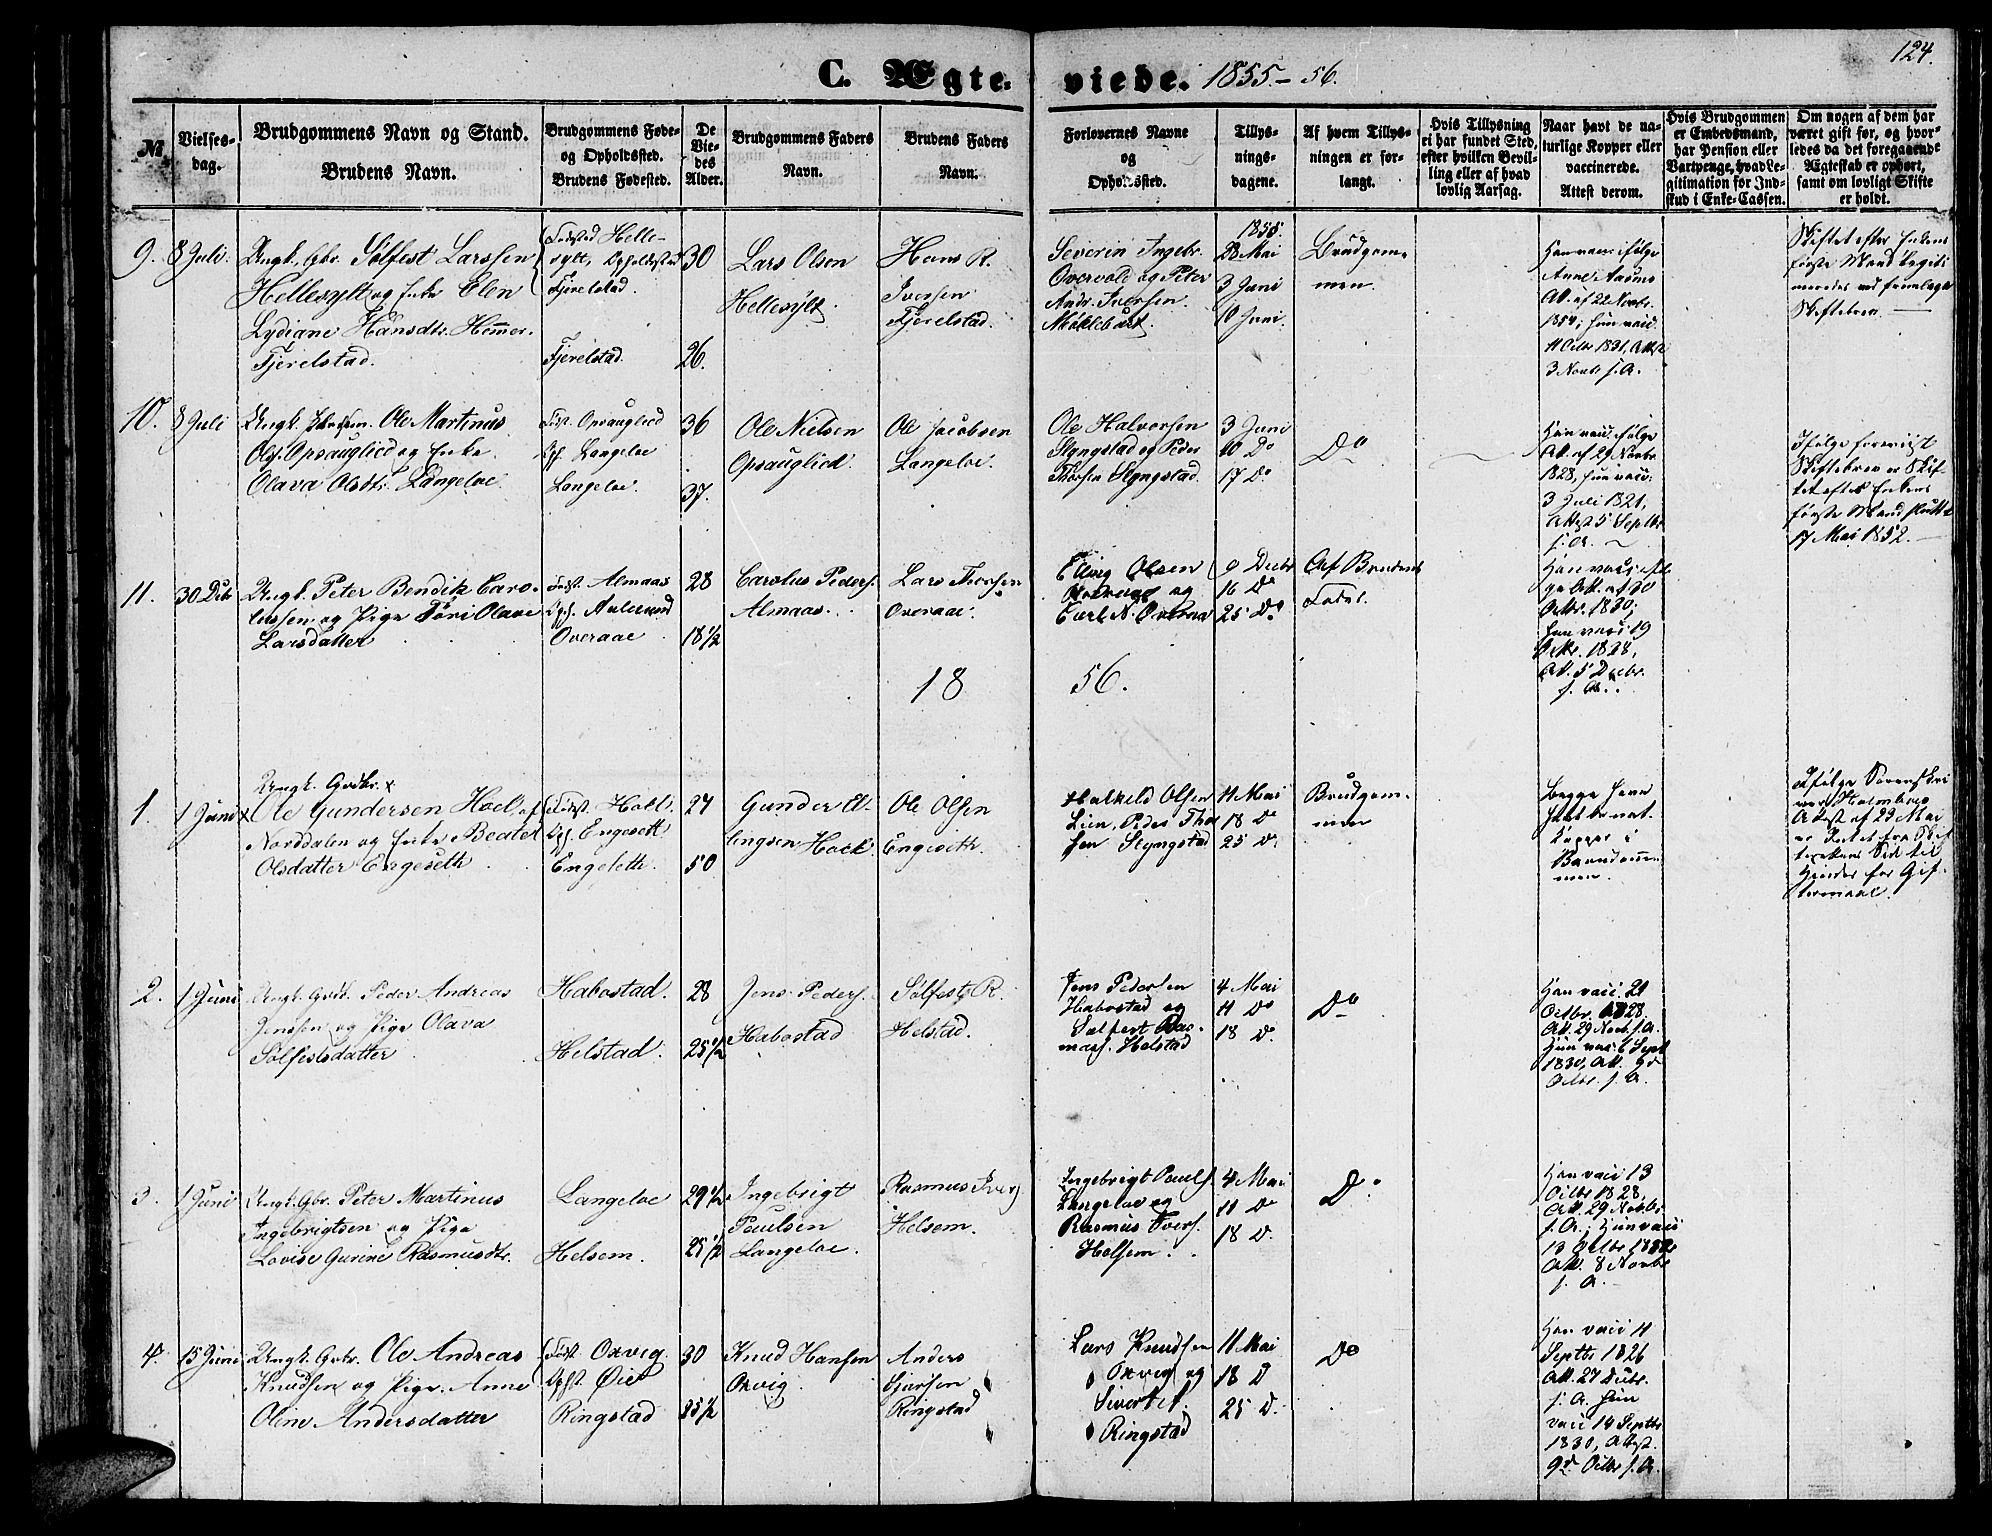 124.
C. Ægte- viede. 1855-56.
No.
Vielses-
dag.
Brudgommens Navn og Stand.
Brudens Navn.
Brudgommens Føde-
og Opholdssted.
Brudens Fødested.
De
Vie-
des
Alder.
Brudgommens Faders
Navn.
Brudens Faders
Navn.
Forlovernes Navne
og
Opholdssted.
Tillys-
nings-
dagene.
Af hvem Tillys-
ningen er for-
langt.
Hvis Tillysning
ei har fundet Sted,
efter hvilken Bevil-
ling eller af hvad
lovlig Aarsag.
Naar havt de na-
turlige Kopper eller
vaccinerede.
Attest derom.
Hvis Brudgommen
er Embedsmand,
har Pension eller
Vartpenge, hvad Le-
gitimation for Ind-
skud i Enke-Cassen.
Om nogen af dem har
været gift før, og hvor-
ledes da det foregaaende
Ægteskab er ophørt,
samt om lovligt Skifte
er holdt.
9.
8 Juli.
Ungk. Gbr. Sølfest Larssen
Hellesylt og Enke Elen
Lydiane Hansdtr. Hemmer.
Fjerelstad.
Fødested Helle-
sylt, Opholdssted
Fjerelstad.
Fjerelstad.
30
26.
Lars Olsen
Hellesylt
Hans R.
Iversen
Fjerelstad.
Severin Ingebr.
Overvold og Peter
Andr. Iversen
Møklebust.
1855.
28 Mai
3 Juni
10 Juni.
Brudgom-
men.
Han vacc: ifølge
Anne Aaums
Att. af 22 Novbr.
1854; hun vacc.
11 Octbr 1831, Attest
3 Novbr s. A.
Skiftet efter Enkens
første Mand legiti-
meredes ved fremlagt
Skiftebrev.
10.
8 Juli
Ungk. Ole Martinus
Ols. Opsauglied og Enke
Olava Olsdtr. Langeloe.
Fst. Opsauglied
Oph. Langeloe
Langeloe.
36
37.
Ole Nielsen
Opsauglied.
Ole Jacobsen
Langeloe.
Ole Halvorsen
Slyngstad og Peder
Thorsen Slyngstad.
3 Juni
10 Do
17 Do
Do
Han vacc: ifølge
Att. af 29 Novbr.
1828, hun vacc:
3 Juli 1821,
Attest 5 Septbr
s. A.
Ifølge forevist
Skiftebrev er Skif-
tet efter Enkens
første Mand sluttet
17 Mai 1852.
11.
30 Dcbr
Ungk. Peter Bendik Caro-
lussen og Pige Tori Olave
Larsdatter
Fødst. Almaas
Oph. Aalesund
Overaae
28
18 1/2
Carolus Peders.
Almaas.
Lars Thorsen
Overaae.
Elling Olsen
Overaae og
Carl N. Overaa
9 Decbr
16 Do
25 Do
Af Brudens
Fader.
Han vacc: iføl-
ge Att. af 30
Octbr. 1830;
hun vacc: 19
Octbr. 1828,
Att. 5 Decbr.
s. A.
18 56.
1.
1 Juni
Ungk. Grdbr. x
x Ole Gundersen Hoel, af
Norddalen og Enke Beate
Olsdatter Engeseth.
Fødst. Hoel.
Oph. Engeseth
Engeseth.
27
50
Gunder El-
lingsen Hoel.
Ole Olsen
Engeseth.
Halkild Olsen
Lien, Peder Thor-
sen Slyngstad
11 Mai
18 Do
25 D.
Brudgom-
men
Begge have
havt de nat.
Kopper i
Barndom-
men.
Ifølge Sorenskri-
ver Holmboes
Attest af 29 Mai
er Intet fra Skif-
terettens Side til
Hinder for Gif-
termaal.
2.
1 Juni
Ungk. Grdb. Peder Andreas
Jenssen og Pige Olava
Sølfestsdatter
Habostad.
Helstad.
28
25 1/2
Jens Peders.
Habostad
Sølfest R.
Helstad.
Jens Pedersen
Habostad og
Sølfest Ras-
muss. Helstad
4 Mai
11 Do
18 D.
Do
Han vacc. 21
Octbr. 1828,
Att. 29 Novb. s. A.
Hun vac: 6 Sept
1830, Att. 9d
Octbr. s. A.
3.
1 Juni
Ungk. Gbr. Peter Martinus
Ingebrigtsen og Pige
Lovise Gurine Rasmusdtr.
Langeloe
Helsem.
29 1/2
25 1/2
Ingebrigt
Paulsen
Langeloe.
Rasmus Ivers
Helsem.
Ingebrigt Pauls.
Langeloe og
Rasmus Ivers.
Helsem.
4 Mai
11 Do
18 D.
Do
Han vacc 13
Octbr 1828,
Att. 29 Novbr.
s. A.; Hun vacc
13 Octbr 1832
Att. 8 Novbr
s. A.
4.
15 Juni
Ungk. Gbr. Ole Andreas
Knudsen og Pige Anne
Oline Andersdatter
Fødst. Oxvig.
Ophst. Øie
Ringstad
30
25 1/2
Knud Hansen
Oxvig.
Anders
Ringstad
Lars Knudsen
Oxvig og
Sivert
Ringstad
11 Mai
18 D
25 D.
Do
Han vacc 11
Septbr 1826
Att. 27 Decbr.
s. A. Hun
vacc 14 Septbr
1830, Attst.
9d Octbr s. A.